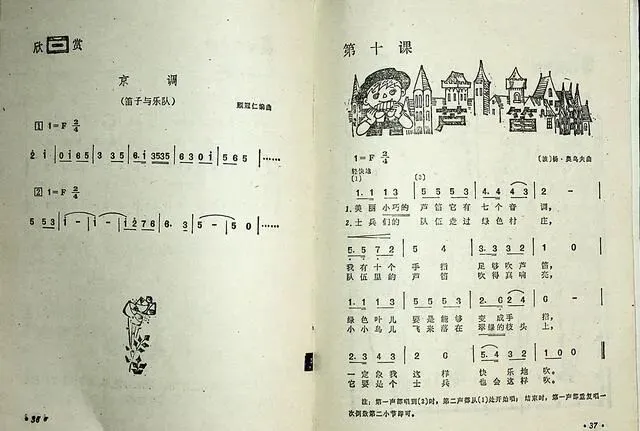 欣 赏
京 调
(笛子与乐队)
顾冠仁编曲
1 1=F 2/4
2 i | 0 i 6 5 | 3 3 5 | 6·i 3535 | 6 3 0 i | 5 6 5 |……
2 1=F 2/4
5 5 3 | i - | i - | i 2 7 6 | 6· 3 | 5 - | 5 0 |……
· 36 ·
第 十 课
芦 笛
1=F 2/4
(波)扬·奥乌夫曲
轻快地
(1) (2)
1·1 1 3 | 5 5 5 3 | 4·4 4 3 | 2 - |
1.美丽 小巧的 芦笛它有 七个音 调,
2.士兵 们的 队伍走过 绿色村 庄,
5·5 7 2 | 5 4 | 3·3 3 2 | 1 0 |
我有十个 手 指 足够吹芦 笛,
队伍里的 芦 笛 吹得真响 亮,
1·1 1 3 | 5 5 5 3 | 2·6 2 4 | 6 - |
绿色叶儿 要是能够 变成手 指,
小小鸟儿 飞来落在 翠绿的枝头 上,
2·3 4 3 | 2 6 | 5·4 3 2 | 1 0 0 ‖
一定象我 这 样 快乐地 吹。
它要是个 士 兵 也会这样 吹。
注:第一声部唱到(2)时,第二声部从(1)处开始唱;结束时,第一声部重复唱一
次倒数第二小节即可。
· 37 ·